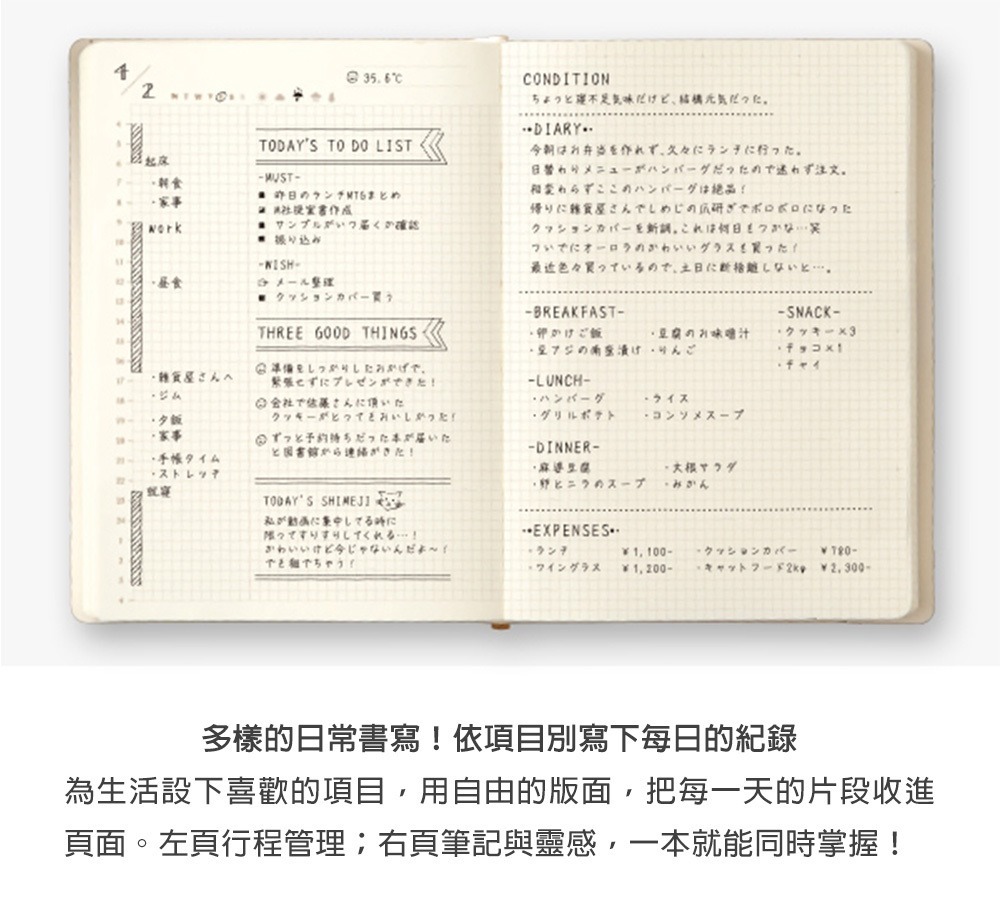 4/2
35.6℃
起床
・朝食
・家事
work
・昼食
・雑貨屋さんへ
・ジム
・夕飯
・家事
・手帳タイム
・ストレッチ
就寝
TODAY'S TO DO LIST
-MUST-
昨日のランチMTGまとめ
A社提案書作成
サンプルがいつ届くか確認
振り込み
-WISH-
メール整理
クッションカバー買う
THREE GOOD THINGS
準備をしっかりしたおかげで、
緊張せずにプレゼンができた！
会社で佐藤さんに頂いた
クッキーがとってもおいしかった！
ずっと予約待ちだった本が届いた
と図書館から連絡がきた！
TODAY'S SHIMEJI
私が動画に集中してる時に
限ってすりすりしてくれる…！
かわいいけど今じゃないんだよ〜！
でも撫でちゃう！
CONDITION
ちょっと寝不足気味だけど、結構元気だった。
・・DIARY・・
今朝はお弁当を作れず、久々にランチに行った。
日替わりメニューがハンバーグだったので迷わず注文。
相変わらずここのハンバーグは絶品！
帰りに雑貨屋さんでしめじの爪研ぎでボロボロになった
クッションカバーを新調。これは何日もつかな…笑
ついでにオーロラのかわいいグラスも買った！
最近色々買っているので、土日に断捨離しないと…。
-BREAKFAST-
・卵かけご飯
・豆腐のお味噌汁
・豆アジの南蛮漬け
・りんご
-SNACK-
・クッキー×3
・チョコ×1
・チャイ
-LUNCH-
・ハンバーグ
・ライス
・グリルポテト
・コンソメスープ
-DINNER-
・麻婆豆腐
・大根サラダ
・卵とニラのスープ
・みかん
・・EXPENSES・・
・ランチ ¥1,100-
・クッションカバー ¥780-
・ワイングラス ¥1,200-
・キャットフード2kg ¥2,300-
多樣的日常書寫！依項目別寫下每日的紀錄
為生活設下喜歡的項目，用自由的版面，把每一天的片段收進
頁面。左頁行程管理；右頁筆記與靈感，一本就能同時掌握！